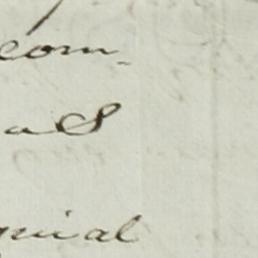 com-
a S
quial